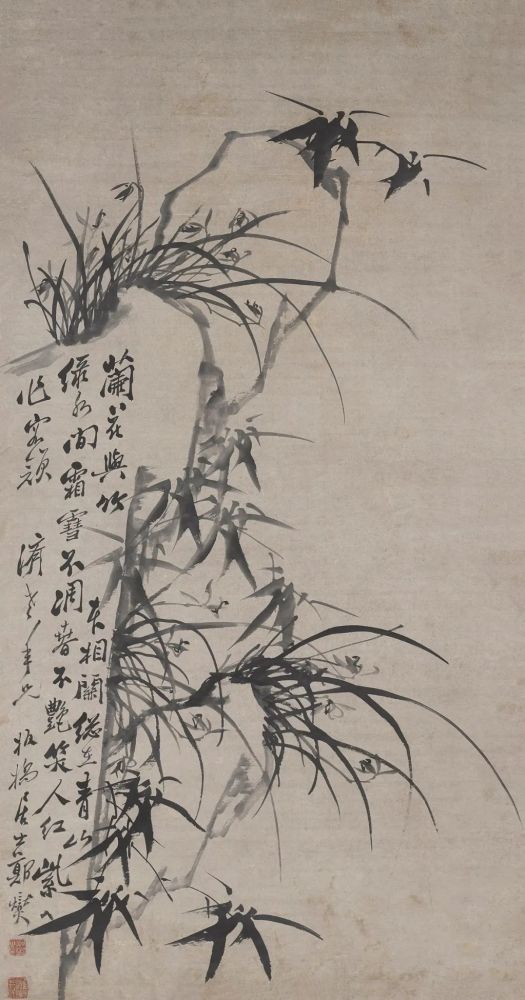 蘭花與竹本相關總在青山
綠水間霜雪不凋春不艷笑人紅紫
作客頑 濟老年兄 板橋居士鄭燮